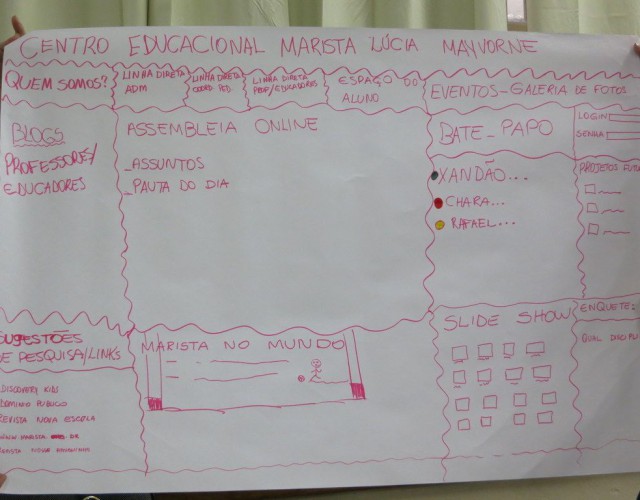 CENTRO EDUCACIONAL MARISTA LÚCIA MAYVORNE
QUEM SOMOS?
LINHA DIRETA
ADM
LINHA DIRETA
COORD. PED.
LINHA DIRETA
PROF/EDUCADORES
ESPAÇO DO
ALUNO
EVENTOS - GALERIA DE FOTOS
BLOGS
PROFESSORES/
EDUCADORES
ASSEMBLEIA ONLINE
_ASSUNTOS
_PAUTA DO DIA
BATE-PAPO
XANDÃO...
CHARA...
RAFAEL...
LOGIN
SENHA
PROJETOS
SUGESTÕES
DE PESQUISA/LINKS
DISCOVERY KIDS
DOMINIO PUBLICO
REVISTA NOVA ESCOLA
MARISTA NO MUNDO
SLIDE SHOW
ENQUETE:
QUAL